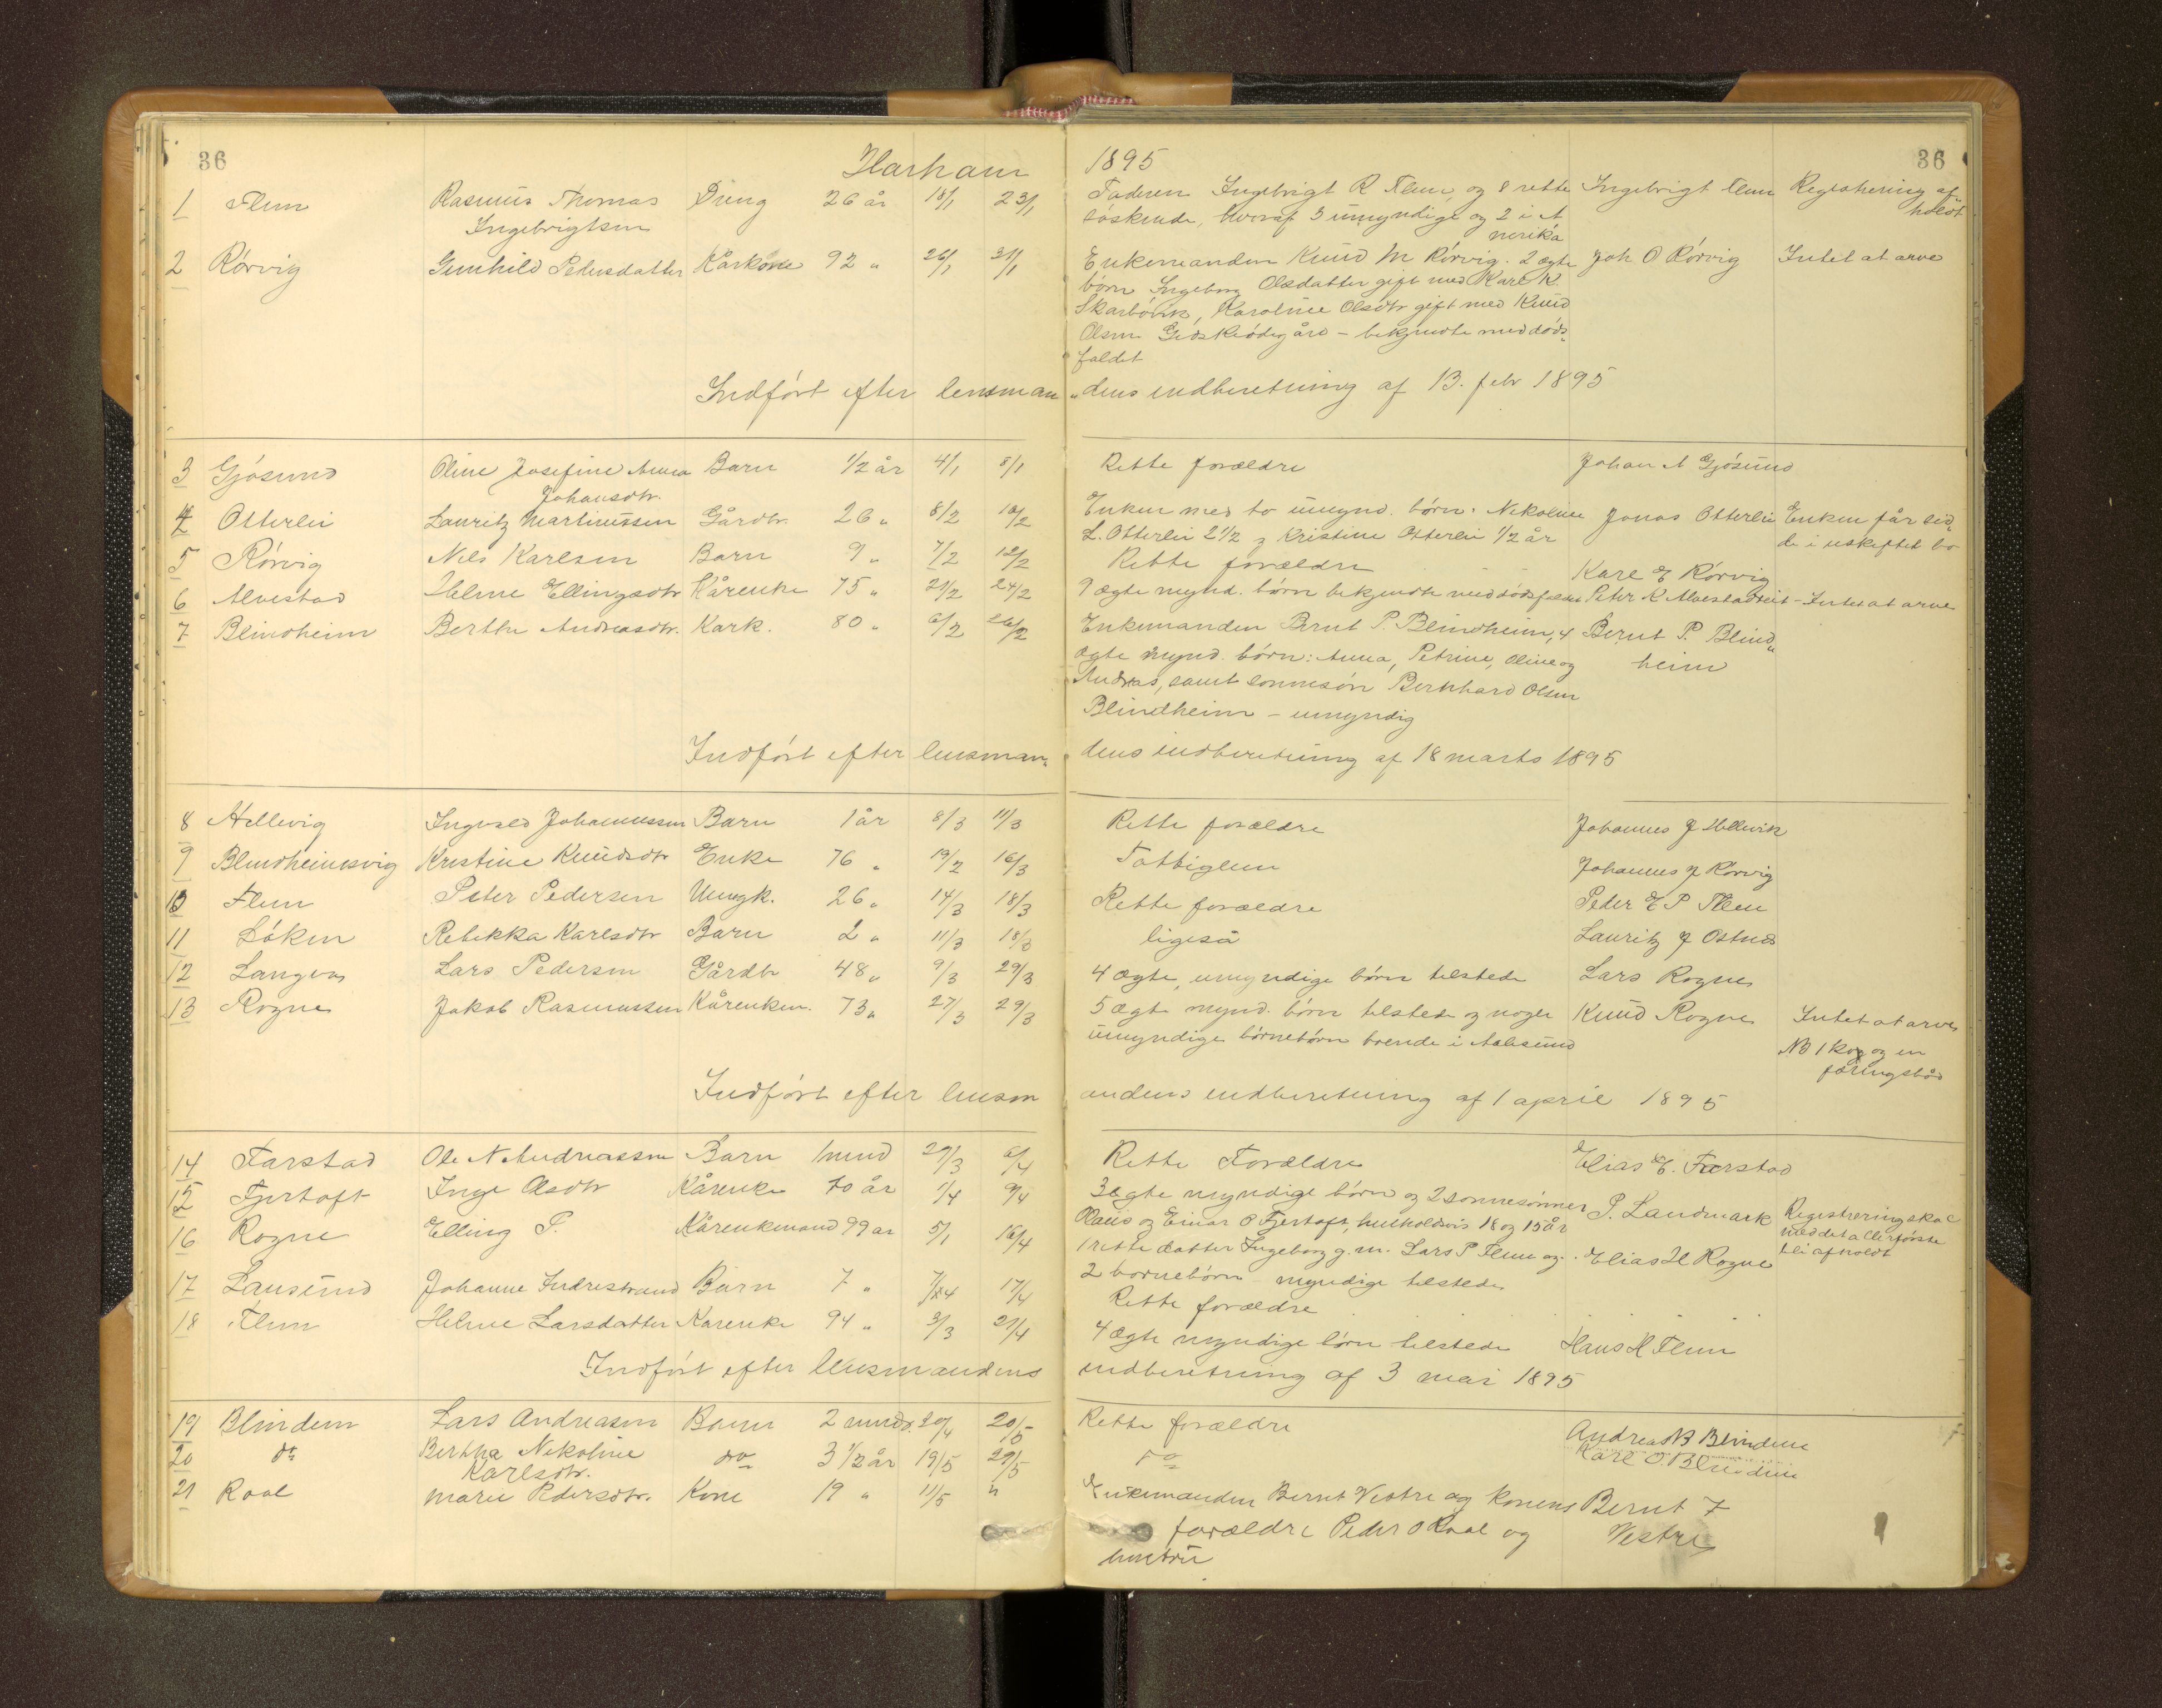 36
Harham 1895
36
1 Flem Rasmus Thomas Dreng 26 år 18/1 23/1 Faderen Ingebrigt R Flem og 8 rette Ingebrigt Flem Registrering af
Ingebrigtsen søskende, hvoraf 3 umyndige og 2 i A holdt
merika
2 Rörvig Gunhild Pedersdatter Kårkone 92 " 26/1 31/1 Enkemanden Knud M Rörvig. 2 ægte Joh O Rörvig Intet at arve
børn Ingeborg Olsdatter gift med Karl K.
Skarbövik, Karoline Olsdtr gift med Knud
Olsen Gidskeödegård - bekjendte med døds
faldet
Indført efter lensman dens indberetning af 13. febr 1895
3 Gjösund Oline Josefine Anna Barn 1/2 år 4/1 8/1 Rette forældre Johan A Gjösund
Johansdtr.
4 Otterlei Lauritz Martinussen Gårdbr. 26 " 8/2 16/2 Enken med to umynd. børn: Nikoline Jonas Otterlei Enken får sid
L. Otterlei 2 1/2 og Kristine Otterlei 1/2 år de i uskiftet bo
5 Rörvig Nils Karlsen Barn 9 " 7/2 12/2 Rette forældre Karl E Rörvig
6 Alvestad Helene Ellingsdtr Kårenke 75 " 21/2 24/2 9 ægte mynd. børn bekjendte med dødsfaldet Peter K Alvestad Intet at arve
7 Blindheim Berthe Andreasdtr. Kark. 80 " 6/2 26/2 Enkemanden Bernt P. Blindheim, 4 Bernt P. Blind
ægte mynd. børn: Anna, Petrine, Oline og heim
Andreas, samt sønnesøn Bernhard Olsen
Blindheim - umyndig
Indført efter lensman dens indberetning af 18 marts 1895
8 Hellevig Ingvald Johannessen Barn 1 år 8/3 11/3 Rette forældre Johannes J Hellevik
9 Blindheimsvig Kristine Knudsdtr Enke 76 " 19/2 16/3 Fattiglem Johannes J Rörvig
10 Flem Peter Pedersen Ungk. 26 " 14/3 18/3 Rette forældre Peder E P Flem
11 Löken Rebekka Karlsdtr Barn 2 " 11/3 18/3 ligeså Lauritz J Ostnes
12 Langva Lars Pedersen Gårdbr 48 " 9/3 29/3 4 ægte, umyndige børn tilstede Lars Rogne
13 Rogne Jakob Rasmussen Kårenkem. 73 " 27/3 29/3 5 ægte mynd. børn tilstede og nogle Knud Rogne Intet at arve
umyndige børnebørn boende i Aalesund NB 1 ko og en
færingsbåd
Indført efter lensm andens indberetning af 1 april 1895
14 Farstad Ole N Andreassen Barn 1 mnd 29/3 6/4 Rette Forældre Elias E. Farstad
15 Fjertoft Inge Olsdtr Kårenke 70 år 1/4 9/4 3 ægte myndige børn og 2 sønnesønner P. Landmark Registrering skal
Olaus og Einar O Fjertoft, henholdsvis 18 og 15 år med det allerførste
16 Rogne Elling P. Kårenkemand 99 ar 5/1 16/4 1 rette datter Ingeborg g. m. Lars P Flem og Elias H Rogne bli afholdt
2 børnebørn myndige tilstede
17 Lausund Johanne Indrestrand Barn 7 " 7/4 17/4 Rette forældre
18 Flem Helene Larsdatter Kårenke 94 " 3/3 21/4 4 ægte myndige børn tilstede Hans H Flem
Indført efter lensmandens indberetning af 3 mai 1895
19 Blindem Lars Andreasen Barn 2 mndr. 20/4 20/5 Rette forældre Andreas B Blindem
20 do Bertha Nikoline do 3 1/2 år 19/5 29/5 do Karl O. Blindem
Karlsdtr.
21 Roal Marie Pedersdtr. Kone 19 " 11/5 " Enkemanden Bernt Vestre og konens Bernt F
forældre Peder O Roal og Vestre
hustru